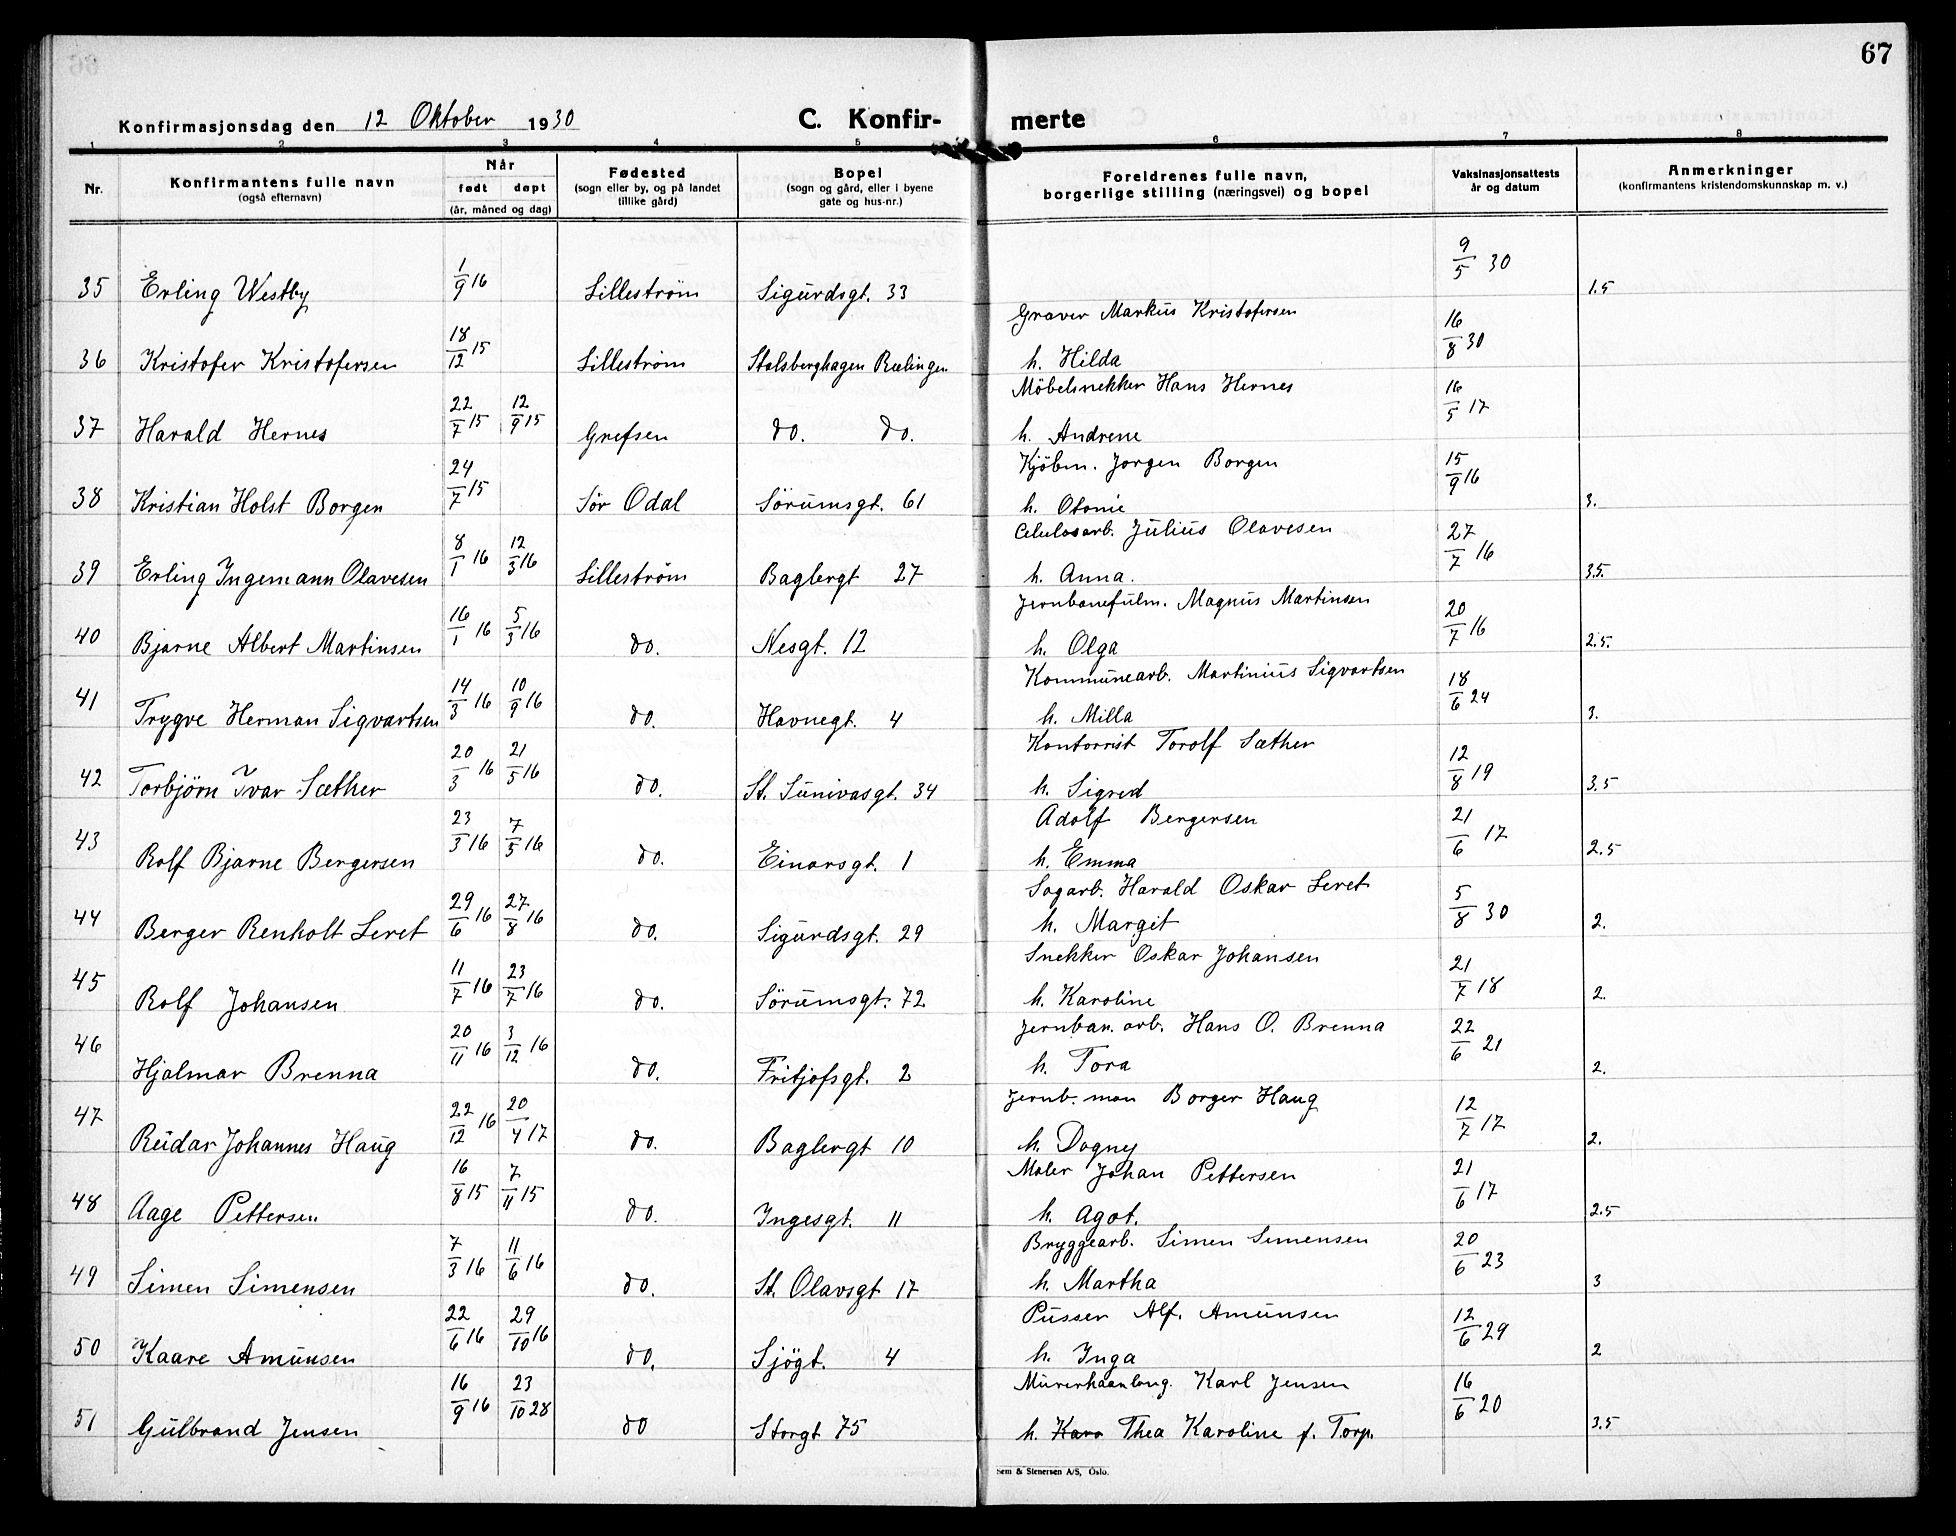 67
Konfirmasjonsdag den 12 Oktober 1930 C. Konfir- merte
1 2 3 4 5 6 7 8
Nr. Konfirmantens fulle navn (også efternavn) Når født døpt (år, måned og dag) Fødested (sogn eller by, og på landet tillike gård) Bopel (sogn og gård, eller i byene gate og hus-nr.) Foreldrenes fulle navn, borgerlige stilling (næringsvei) og bopel Vaksinasjonsattests år og datum Anmerkninger (konfirmantens kristendomskunnskap m. v.)
35 Erling Westby 1/9 16 Lilleström Sigurdsgt. 33 9/5 30 1.5
36 Kristofer Kristofersen 18/12 15 Lilleström Stalsberghagen Rælingen Graver Markus Kristofersen h. Hilda 16/8 30
37 Harald Hernes 22/7 15 12/9 15 Grefsen do. do. Möbelsnekker Hans Hernes h. Andrene 16/5 17
38 Kristian Holst Borgen 24/7 15 Sör Odal Sörumsgt. 61 Kjöbm. Jorgen Borgen h. Otonie 15/9 16 3.
39 Erling Ingemann Olavesen 8/1 16 12/3 16 Lilleström Baglergt 27 Celulosarb. Julius Olavesen h. Anna. 27/7 16 3.5.
40 Bjarne Albert Martinsen 16/1 16 5/3 16 do. Nesgt. 12 Jernbanefulm. Magnus Martinsen h. Olga 20/7 16 2.5.
41 Trygve Herman Sigvartsen 14/3 16 10/9 16 do. Havnegt. 4 Kommunearb. Martinius Sigvartsen h. Milla 18/6 24 3.
42 Torbjörn Ivar Sæther 20/3 16 21/5 16 do. St. Sunivasgt. 34 Kontorrist Torolf Sæther h. Sigred 12/8 19 3.5
43 Rolf Bjarne Bergersen 23/3 16 7/5 16 do. Einarsgt. 1 Adolf Bergersen h. Emma 21/6 17 2.5
44 Berger Renholt Leret 29/6 16 27/8 16 do. Sigurdsgt. 29 Sagarb. Harald Oskar Leret h. Margit 5/8 30 2.
45 Rolf Johansen 11/7 16 23/7 16 do. Sörumsgt. 72 Snekker Oskar Johansen h. Karoline 21/7 18 2.
46 Hjalmar Brenna 20/11 16 3/12 16 do. Fritjofsgt. 2 Jernban. arb. Hans O. Brenna h. Tora 22/6 21 2.
47 Reidar Johannes Haug 22/12 16 20/4 17 do. Baglergt 10 Jernb. man Borger Haug h. Dagny 12/7 17 2.
48 Aage Pettersen 16/8 15 7/11 15 do. Ingesgt. 11 Maler Johan Pettersen h. Agot. 21/6 17 2.5
49 Simen Simensen 7/3 16 11/6 16 do. St. Olavsgt 17 Bryggearb. Simen Simensen h. Martha 20/6 23 3
50 Kaare Amunsen 22/6 16 29/10 16 do. Sjögt. 4 Pusser Alf. Amunsen h. Inga 12/6 29 2
51 Gulbrand Jensen 16/9 16 23/10 28 do Storgt 75 Murerhaanlang. Karl Jensen h. Karo Thea Karoline f. Torp. 16/6 20 3.5
Sem & Stenersen A/S, Oslo.